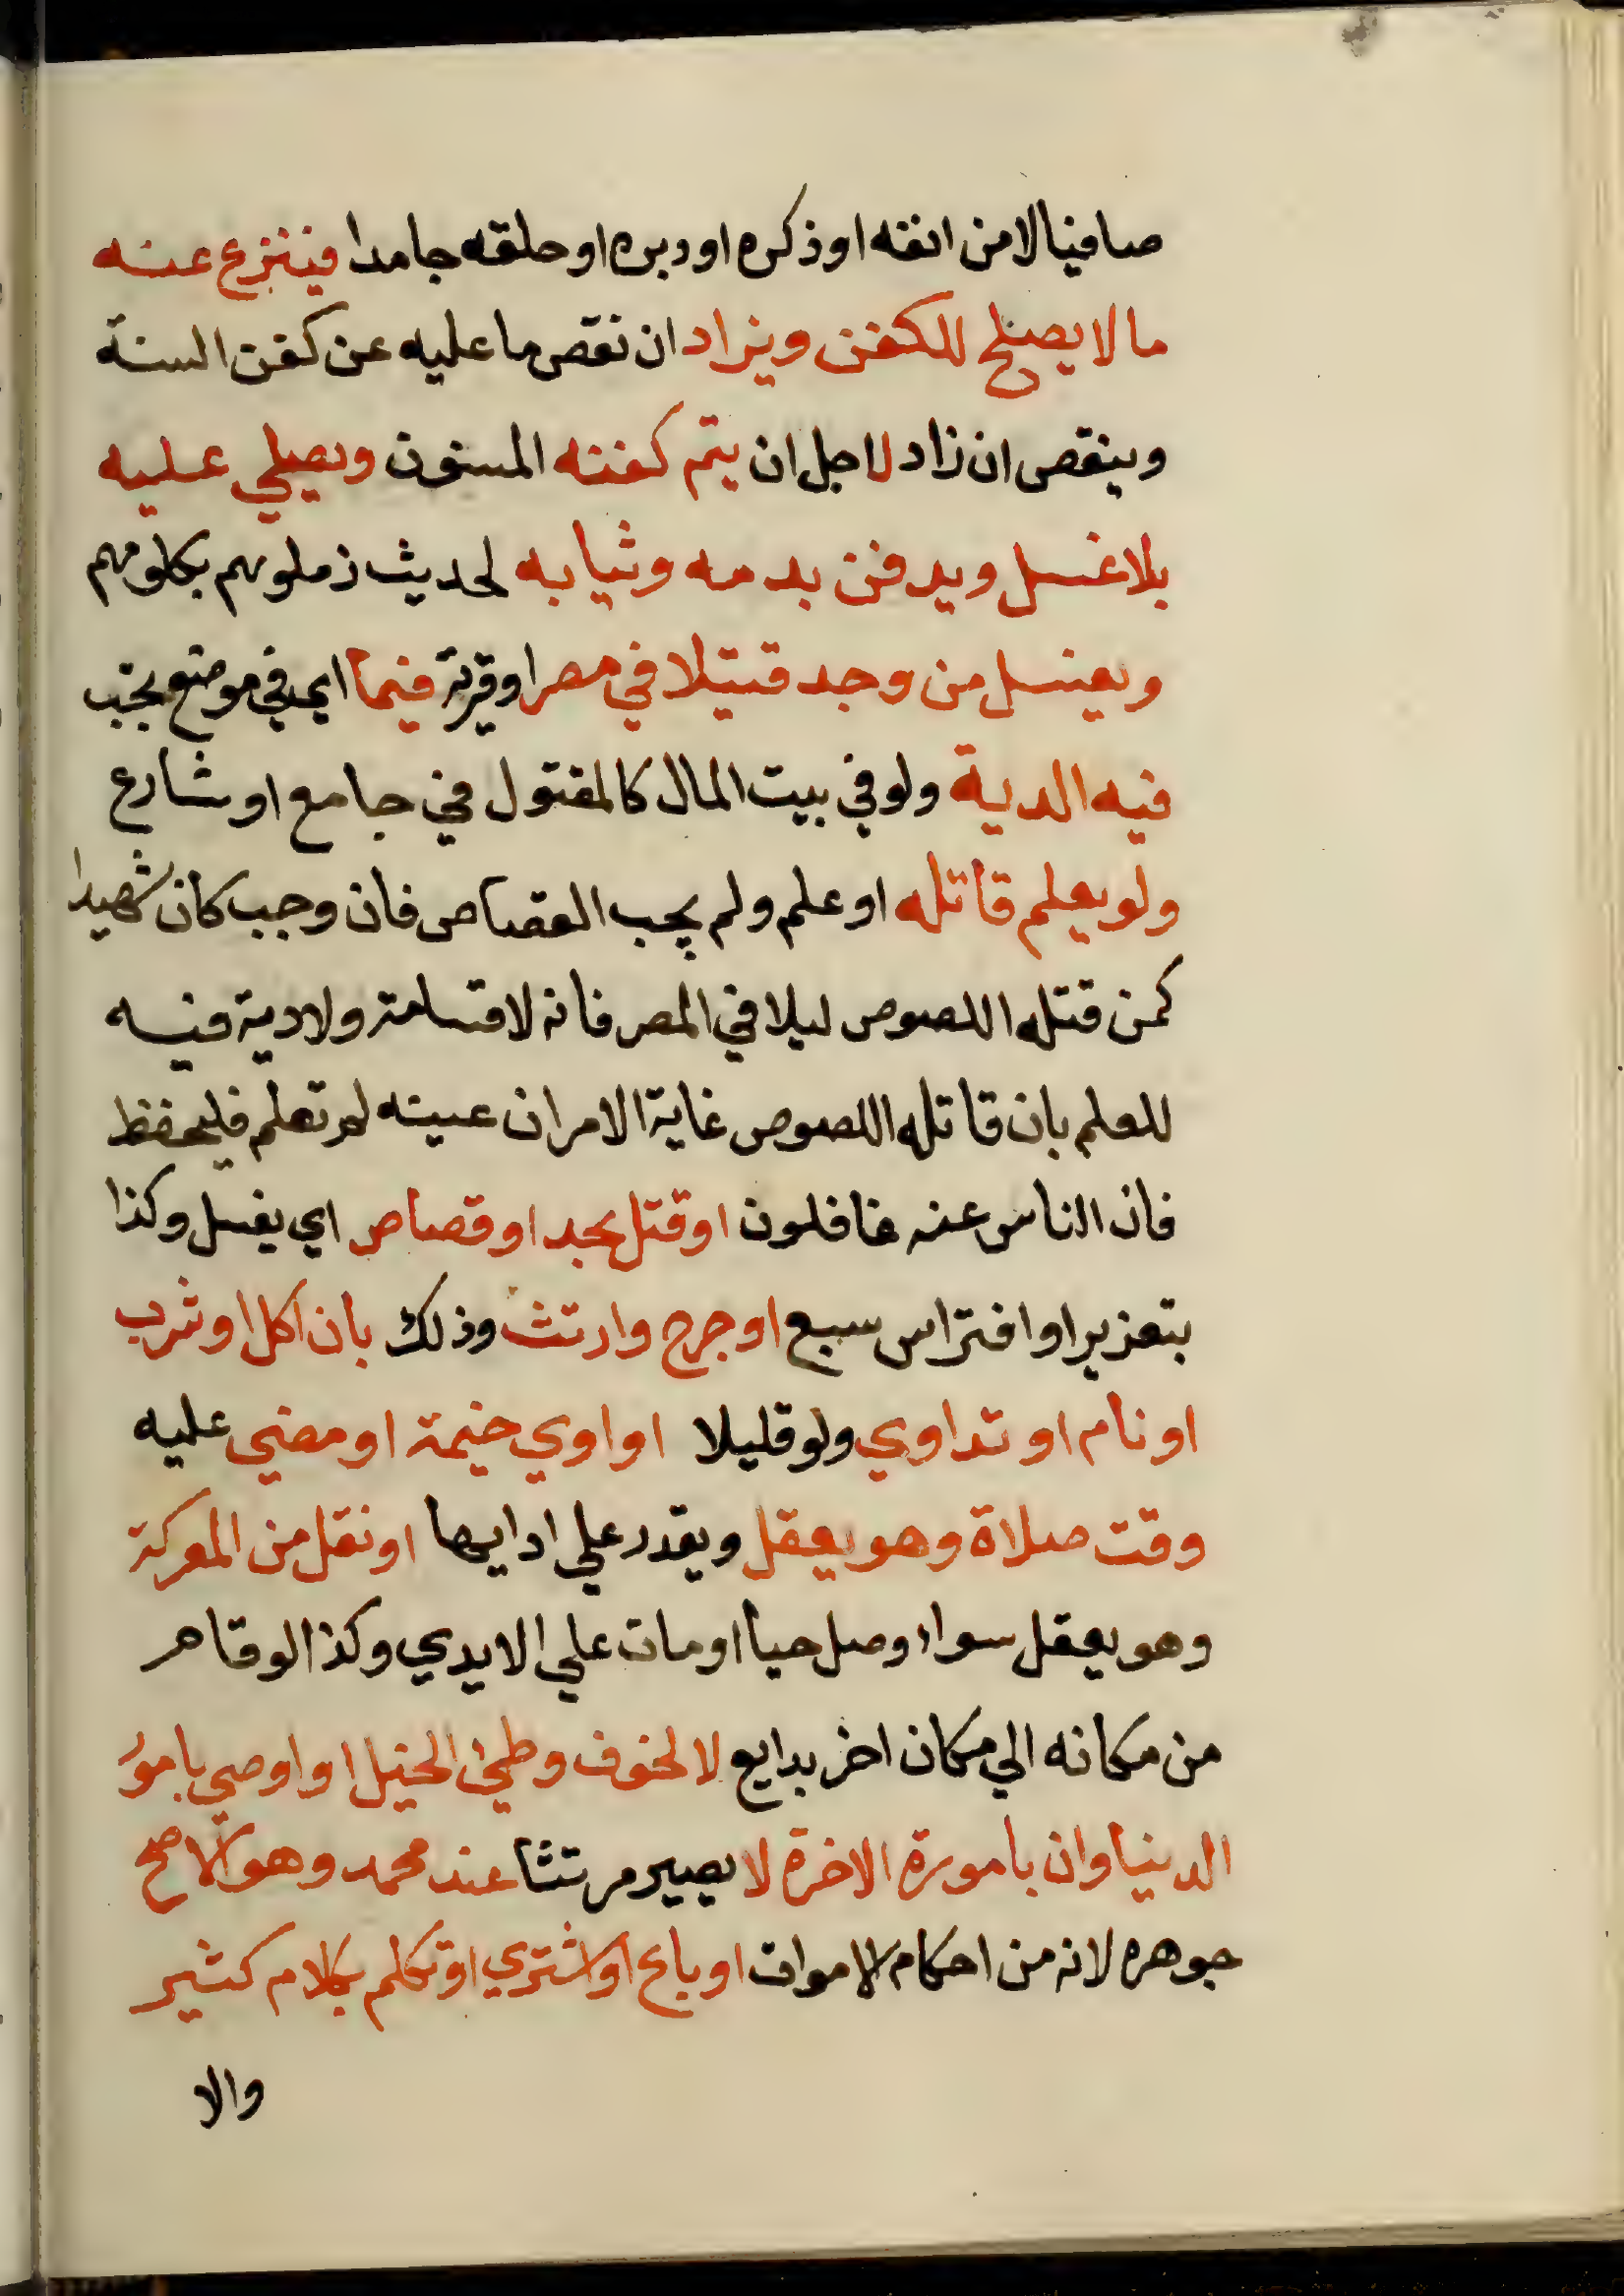 صافيا لا من انفه او ذكره او دبره او حلقه جامدا فينزع عنه
ما لا يصلح للكفن ويزاد ان نقص ما عليه عن كفن السنة
وينقص ان زاد لاجل ان يتم كفنه المسنون ويصلي عليه
بلا غسل ويدفن بدمه وثيابه لحديث زملوهم بكلومهم
ويغسل من وجد قتيلا في مصر او قرية فيما اي في موضع يجب
فيه الدية ولو في بيت المال كالمقتول في جامع او شارع
ولو يعلم قاتله او علم ولم يجب القصاص فان وجب كان شهيدا
كمن قتله اللصوص ليلا في المصر فانه لا قسامة ولا دية فيه
للعلم بان قاتله اللصوص غاية الامر ان عينه لم تعلم فليحفظ
فان الناس عنه غافلون او قتل بحد او قصاص اي يغسل وكذا
بتعزير او افتراس سبع او جرح وارتث وذلك بان اكل او شرب
او نام او تداوي ولو قليلا او اوي خيمة او مضي عليه
وقت صلاة وهو يعقل ويقدر علي ادايها او نقل من المعركة
وهو يعقل سواء وصل حيا او مات علي الايدي وكذا لو قام
من مكانه الي مكان اخر بدايع لا لخوف وطئ الخيل او اوصي بامور
الدنيا وان بامورة الاخرة لا يصير مرتثا عند محمد وهو الاصح
جوهره لانه من احكام الاموات او باع او اشتري او تكلم بكلام كثير
والا